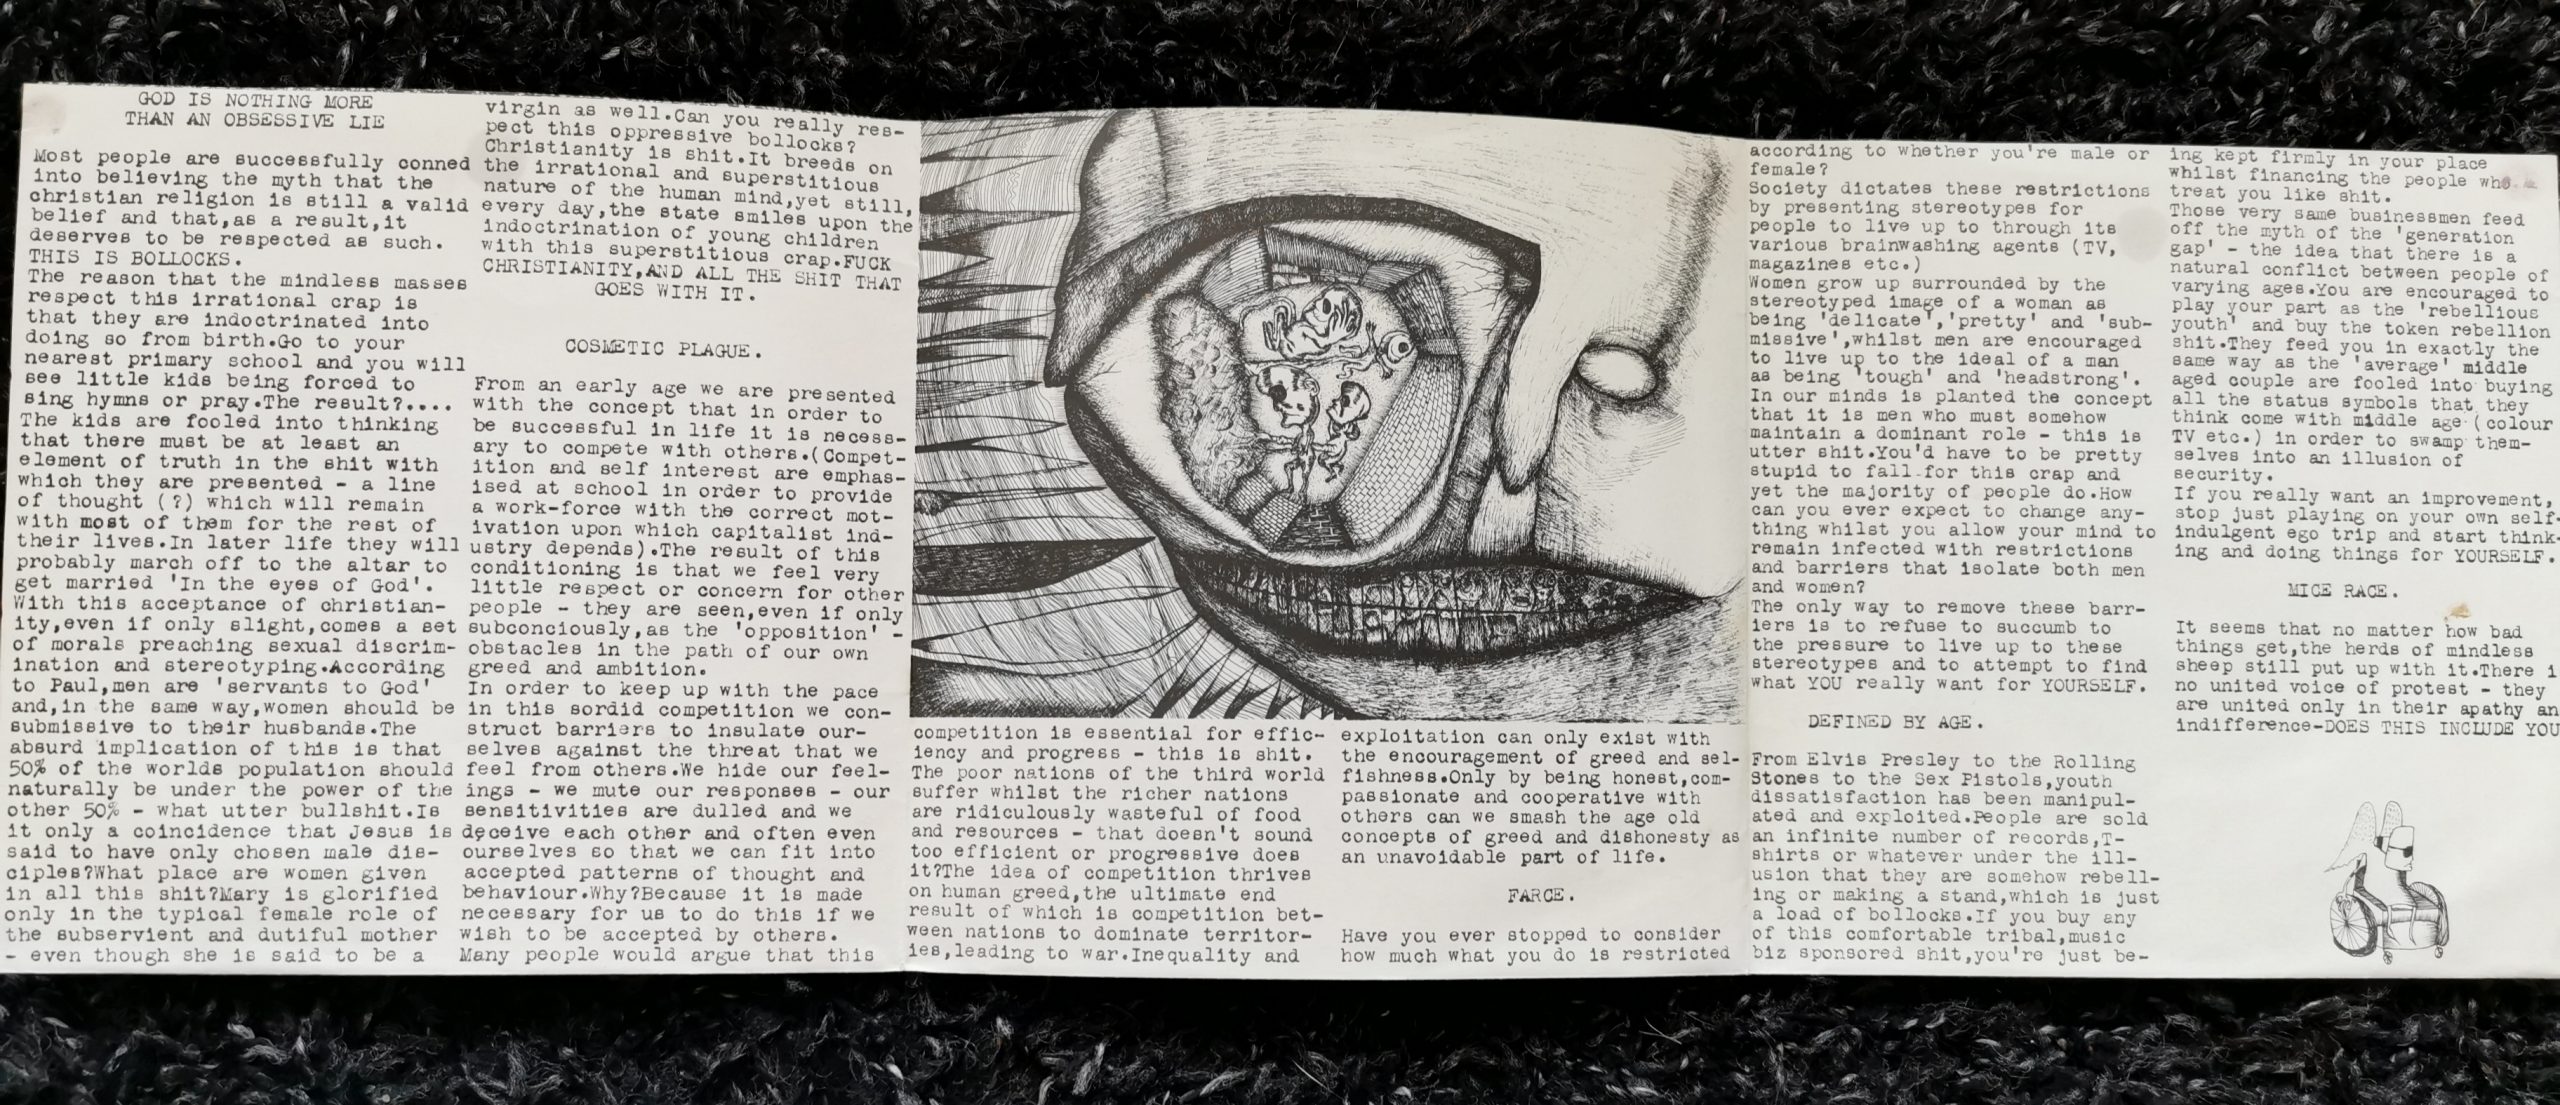 GOD IS NOTHING MORE
THAN AN OBSESSIVE LIE
Most people are successfully conned
into believing the myth that the
christian religion is still a valid
belief and that,as a result,it
deserves to be respected as such.
THIS IS BOLLOCKS.
The reason that the mindless masses
respect this irrational crap is
that they are indoctrinated into
doing so from birth.Go to your
nearest primary school and you will
see little kids being forced to
sing hymns or pray.The result?....
The kids are fooled into thinking
that there must be at least an
element of truth in the shit with
which they are presented - a line
of thought (?) which will remain
with most of them for the rest of
their lives.In later life they will
probably march off to the altar to
get married 'In the eyes of God'.
With this acceptance of christian-
ity,even if only slight,comes a set
of morals preaching sexual discrim-
ination and stereotyping.According
to Paul,men are 'servants to God'
and,in the same way,women should be
submissive to their husbands.The
absurd implication of this is that
50% of the worlds population should
naturally be under the power of the
other 50% - what utter bullshit.Is
it only a coincidence that Jesus is
said to have only chosen male dis-
ciples?What place are women given
in all this shit?Mary is glorified
only in the typical female role of
the subservient and dutiful mother
- even though she is said to be a
virgin as well.Can you really res-
pect this oppressive bollocks?
Christianity is shit.It breeds on
the irrational and superstitious
nature of the human mind,yet still,
every day,the state smiles upon the
indoctrination of young children
with this superstitious crap.FUCK
CHRISTIANITY,AND ALL THE SHIT THAT
GOES WITH IT.
COSMETIC PLAGUE.
From an early age we are presented
with the concept that in order to
be successful in life it is necess-
ary to compete with others.(Compet-
ition and self interest are emphas-
ised at school in order to provide
a work-force with the correct mot-
ivation upon which capitalist ind-
ustry depends).The result of this
conditioning is that we feel very
little respect or concern for other
people - they are seen,even if only
subconciously,as the 'opposition' -
obstacles in the path of our own
greed and ambition.
In order to keep up with the pace
in this sordid competition we con-
struct barriers to insulate our-
selves against the threat that we
feel from others.We hide our feel-
ings - we mute our responses - our
sensitivities are dulled and we
deceive each other and often even
ourselves so that we can fit into
accepted patterns of thought and
behaviour.Why?Because it is made
necessary for us to do this if we
wish to be accepted by others.
Many people would argue that this
competition is essential for effic-
iency and progress - this is shit.
The poor nations of the third world
suffer whilst the richer nations
are ridiculously wasteful of food
and resources - that doesn't sound
too efficient or progressive does
it?The idea of competition thrives
on human greed,the ultimate end
result of which is competition bet-
ween nations to dominate territor-
ies,leading to war.Inequality and
exploitation can only exist with
the encouragement of greed and sel-
fishness.Only by being honest,com-
passionate and cooperative with
others can we smash the age old
concepts of greed and dishonesty as
an unavoidable part of life.
FARCE.
Have you ever stopped to consider
how much what you do is restricted
according to whether you're male or
female?
Society dictates these restrictions
by presenting stereotypes for
people to live up to through its
various brainwashing agents (TV,
magazines etc.)
Women grow up surrounded by the
stereotyped image of a woman as
being 'delicate','pretty' and 'sub-
missive',whilst men are encouraged
to live up to the ideal of a man
as being 'tough' and 'headstrong'.
In our minds is planted the concept
that it is men who must somehow
maintain a dominant role - this is
utter shit.You'd have to be pretty
stupid to fall for this crap and
yet the majority of people do.How
can you ever expect to change any-
thing whilst you allow your mind to
remain infected with restrictions
and barriers that isolate both men
and women?
The only way to remove these barr-
iers is to refuse to succumb to
the pressure to live up to these
stereotypes and to attempt to find
what YOU really want for YOURSELF.
DEFINED BY AGE.
From Elvis Presley to the Rolling
Stones to the Sex Pistols,youth
dissatisfaction has been manipul-
ated and exploited.People are sold
an infinite number of records,T-
shirts or whatever under the ill-
usion that they are somehow rebell-
ing or making a stand,which is just
a load of bollocks.If you buy any
of this comfortable tribal,music
biz sponsored shit,you're just be-
ing kept firmly in your place
whilst financing the people who
treat you like shit.
Those very same businessmen feed
off the myth of the 'generation
gap' - the idea that there is a
natural conflict between people of
varying ages.You are encouraged to
play your part as the 'rebellious
youth' and buy the token rebellion
shit.They feed you in exactly the
same way as the 'average' middle
aged couple are fooled into buying
all the status symbols that they
think come with middle age (colour
TV etc.) in order to swamp them-
selves into an illusion of
security.
If you really want an improvement,
stop just playing on your own self-
indulgent ego trip and start think-
ing and doing things for YOURSELF.
MICE RACE.
It seems that no matter how bad
things get,the herds of mindless
sheep still put up with it.There i
no united voice of protest - they
are united only in their apathy an
indifference-DOES THIS INCLUDE YOU